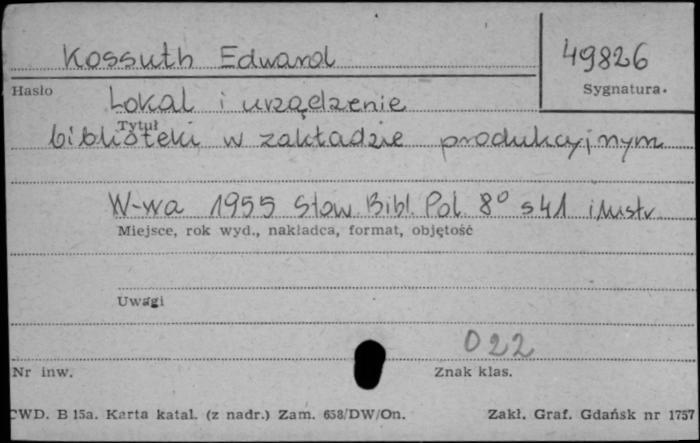 Kossuth Edward
49826
Hasło
Sygnatura.
Lokal i urządzenie
Tytuł
biblioteki w zakładzie produkcyjnym
W-wa 1955 Stow. Bibl. Pol. 8° s 41 ilustr.
Miejsce, rok wyd., nakładca, format, objętość
Uwagi
022
Nr inw.
Znak klas.
CWD. B 15a. Karta katal. (z nadr.) Zam. 658/DW/On.
Zakł. Graf. Gdańsk nr 1757